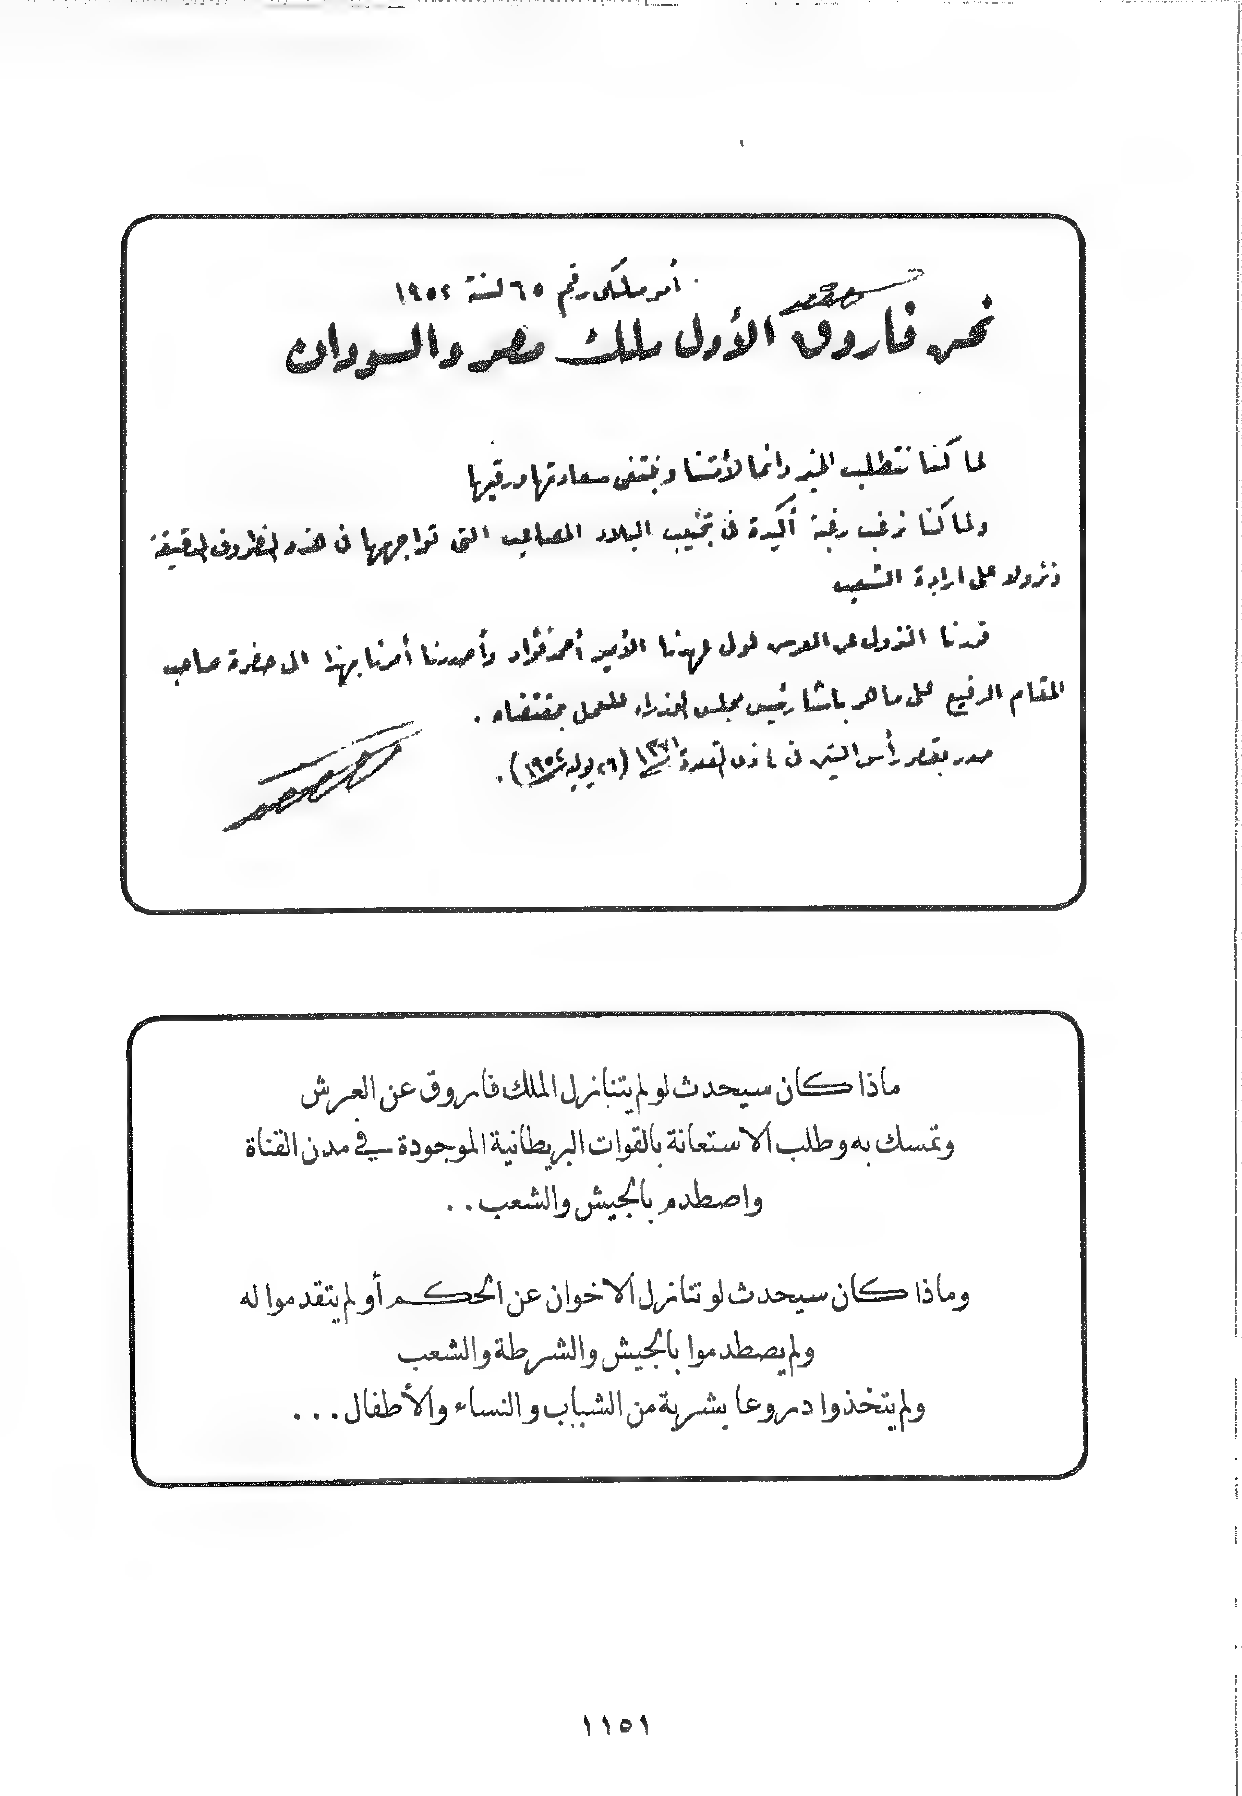 أمر ملكى رقم ٦٥ لسنة ١٩٥٢
نحن فاروق الأول ملك مصر والسودان
لما كنا نتطلب الخير دائما لأمتنا ونبتغى سعادتها ورقيها
ولما كنا نرغب رغبة أكيدة فى تجنيب البلاد المصاعب التى تواجهها فى هذه الظروف الدقيقة
ونزولا على ارادة الشعب
قررنا النزول عن العرش لولى عهدنا الأمير أحمد فؤاد وأصدرنا أمرنا بهذا الى حضرة صاحب
المقام الرفيع على ماهر باشا رئيس مجلس الوزراء للعمل بمقتضاه .
صدر بقصر رأس التين فى ٤ ذى القعدة ١٣٧١ (٢٦ يوليه ١٩٥٢) .
ماذا كان سيحدث لو لم يتنازل الملك فاروق عن العرش
وتمسك به وطلب الاستعانة بالقوات البريطانية الموجودة في مدن القناة
واصطدم بالجيش والشعب . .
وماذا كان سيحدث لو تنازل الاخوان عن الحكم أو لم يتقدموا له
ولم يصطدموا بالجيش والشرطة والشعب
ولم يتخذوا دروعا بشرية من الشباب والنساء والأطفال . . .
١١٥١